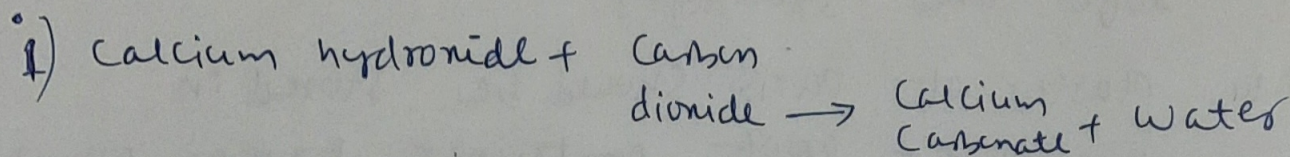 i) Calcium hydroxide + Carbon
dioxide → Calcium Carbonate + Water